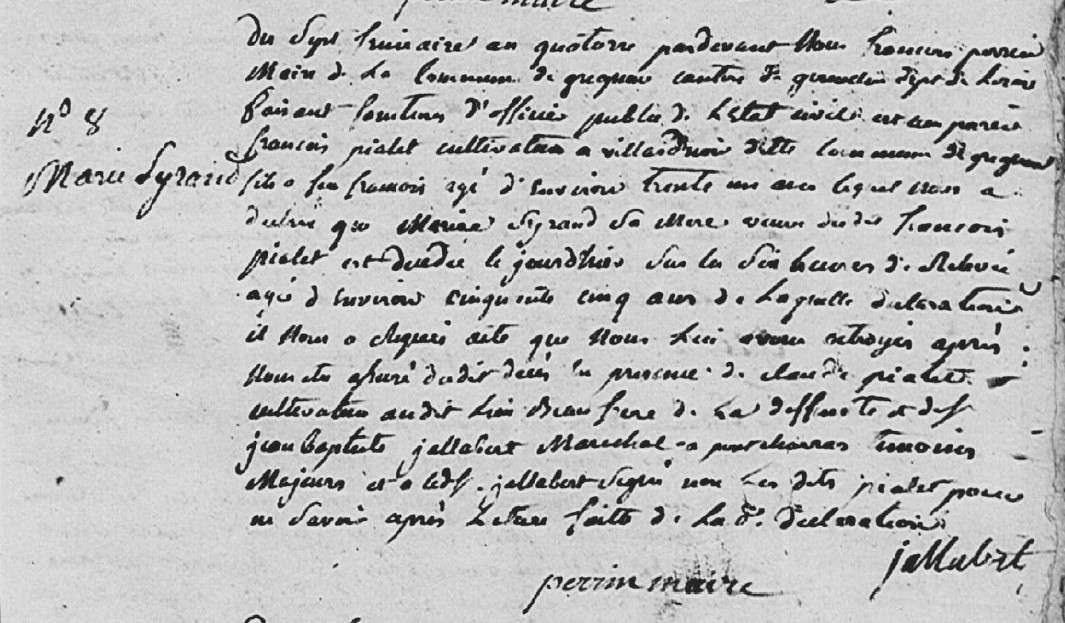 Du Sept frimaire an quatorze pardevant Nous francois perrin
Maire de La Commune de grignan canton de dept de
faisant fonctions d'officier public de L'Etat civil est comparu
francois pialet cultivateur a ditte Commune de
N° 8
Marie Syrand
fils a feu francois agé d'Environ trente un ans lequel Nous a
declaré que Marie Syrand Sa Mere veuve dudit francois
pialet est decedée le jourdhier Sur les Six heures de Relevée
agée d'Environ cinquante cinq ans de Laquelle declaration
il Nous a requis acte que Nous Lui avons octroyer après
Nous etre assuré dudit décès en presence de claude pialet
cultivateur audit Lieu Beau frere de La deffunte et de
jean Baptiste jallabert Marechal a pontcharra temoins
Majeurs et a ledt jallabert Signé non Les dits pialet pour
ne Savoir après Lecture faitte de La de declaration
jallabert
perrin maire